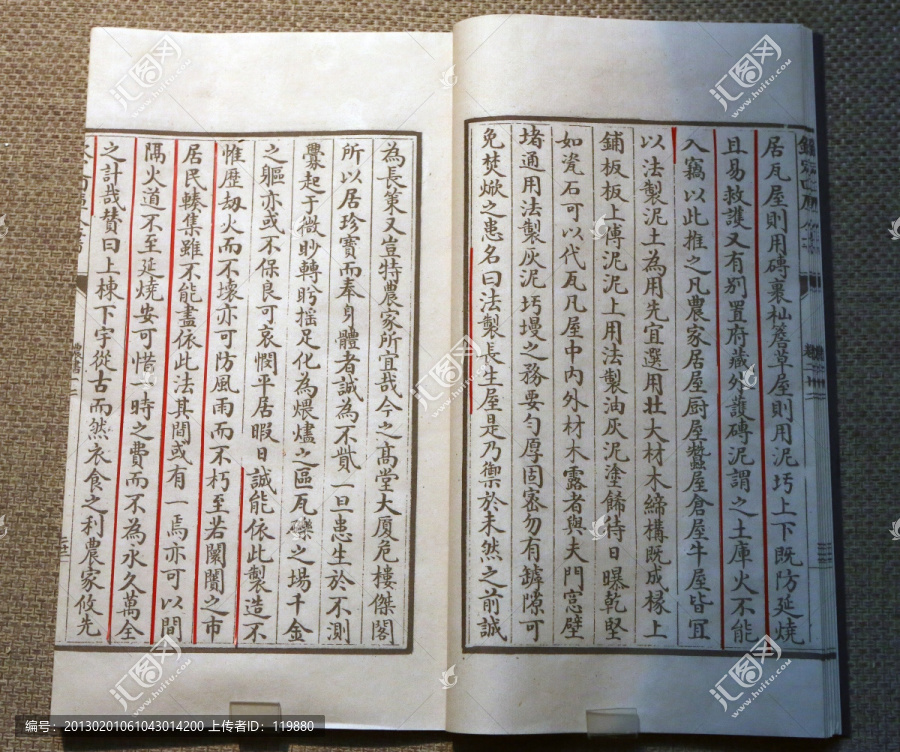 居瓦屋則用磚裹杣簷草屋則用泥圬上下既防延燒
且易救護又有別置府藏外護磚泥謂之土庫火不能
入竊以此推之凡農家居屋厨屋蠶屋倉屋牛屋皆宜
以法製泥土為用先宜選用壯大材木締構既成椽上
鋪板板上傅泥泥上用法製油灰泥塗餙待日曝乾堅
如瓷石可以代瓦凡屋中内外材木露者與夫門窓壁
堵通用法製灰泥圬墁之務要勻厚固密勿有罅隙可
免焚焮之患名曰法製長生屋是乃禦於未然之前誠
為長策又豈特農家所宜哉今之髙堂大厦危樓傑閣
所以居珍寶而奉身體者誠為不貲一旦患生於不測
釁起于微眇轉盻摇足化為煨燼之區瓦礫之場千金
之軀亦或不保良可哀憫平居暇日誠能依此製造不
惟歷劫火而不壞亦可防風雨而不朽至若闤闠之市
居民輳集雖不能盡依此法其間或有一焉亦可以間
隔火道不至延燒安可惜一時之費而不為永久萬全
之計哉賛曰上棟下宇從古而然衣食之利農家攸先
農書
二十一
www.huitu.com
汇图网
编号：20130201061043014200 上传者ID：119880